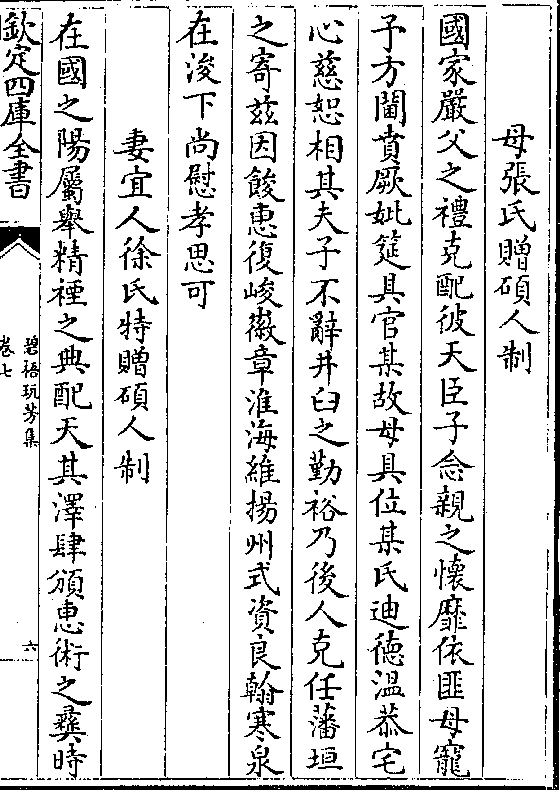 母張氏贈碩人制
國家嚴父之禮克配彼天臣子念親之懷靡依匪母寵
予方閫賁厥妣筵具官某故母具位某氏迪德溫恭宅
心慈恕相其夫子不辭井臼之勤裕乃後人克任藩垣
之寄兹因餕惠復峻徽章淮海維揚州式資良翰寒泉
在浚下尚慰孝思可
妻宜人徐氏特贈碩人制
在國之陽屬舉精禋之典配天其澤肆頒惠術之彞時
欽定四庫全書
碧梧玩芳集
卷七
六